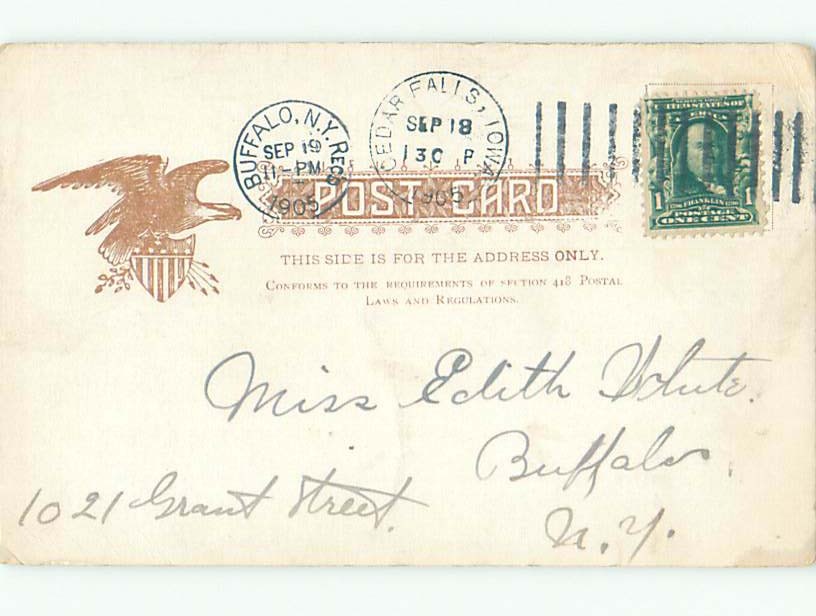 BUFFALO, N.Y. REC'D
SEP 19
11-PM
1905
CEDAR FALLS, IOWA
SEP 18
130 P
1905
SERIES 1902
UNITED STATES OF AMERICA
1 FRANKLIN 1
POSTAGE
ONE CENT
POST CARD
THIS SIDE IS FOR THE ADDRESS ONLY.
CONFORMS TO THE REQUIREMENTS OF SECTION 418 POSTAL
LAWS AND REGULATIONS.
Miss Edith White.
Buffalo
1021 Grant Street.
N.Y.